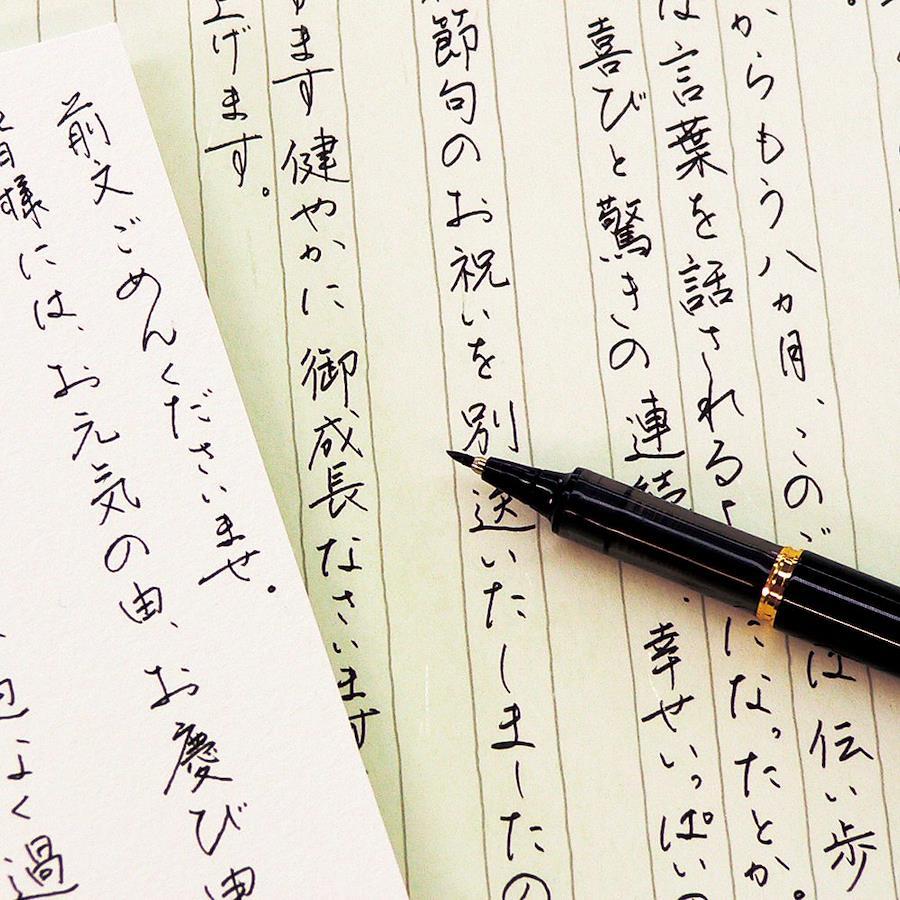 からもう八ヵ月、このご は伝い歩
は言葉を話されるよ になったとか。
喜びと驚きの連続 幸せいっぱいの
節句のお祝いを別送いたしましたの
ます健やかに御成長なさいます
上げます。
前文ごめんくださいませ。
皆様には、お元気の由、お慶び申
よく過